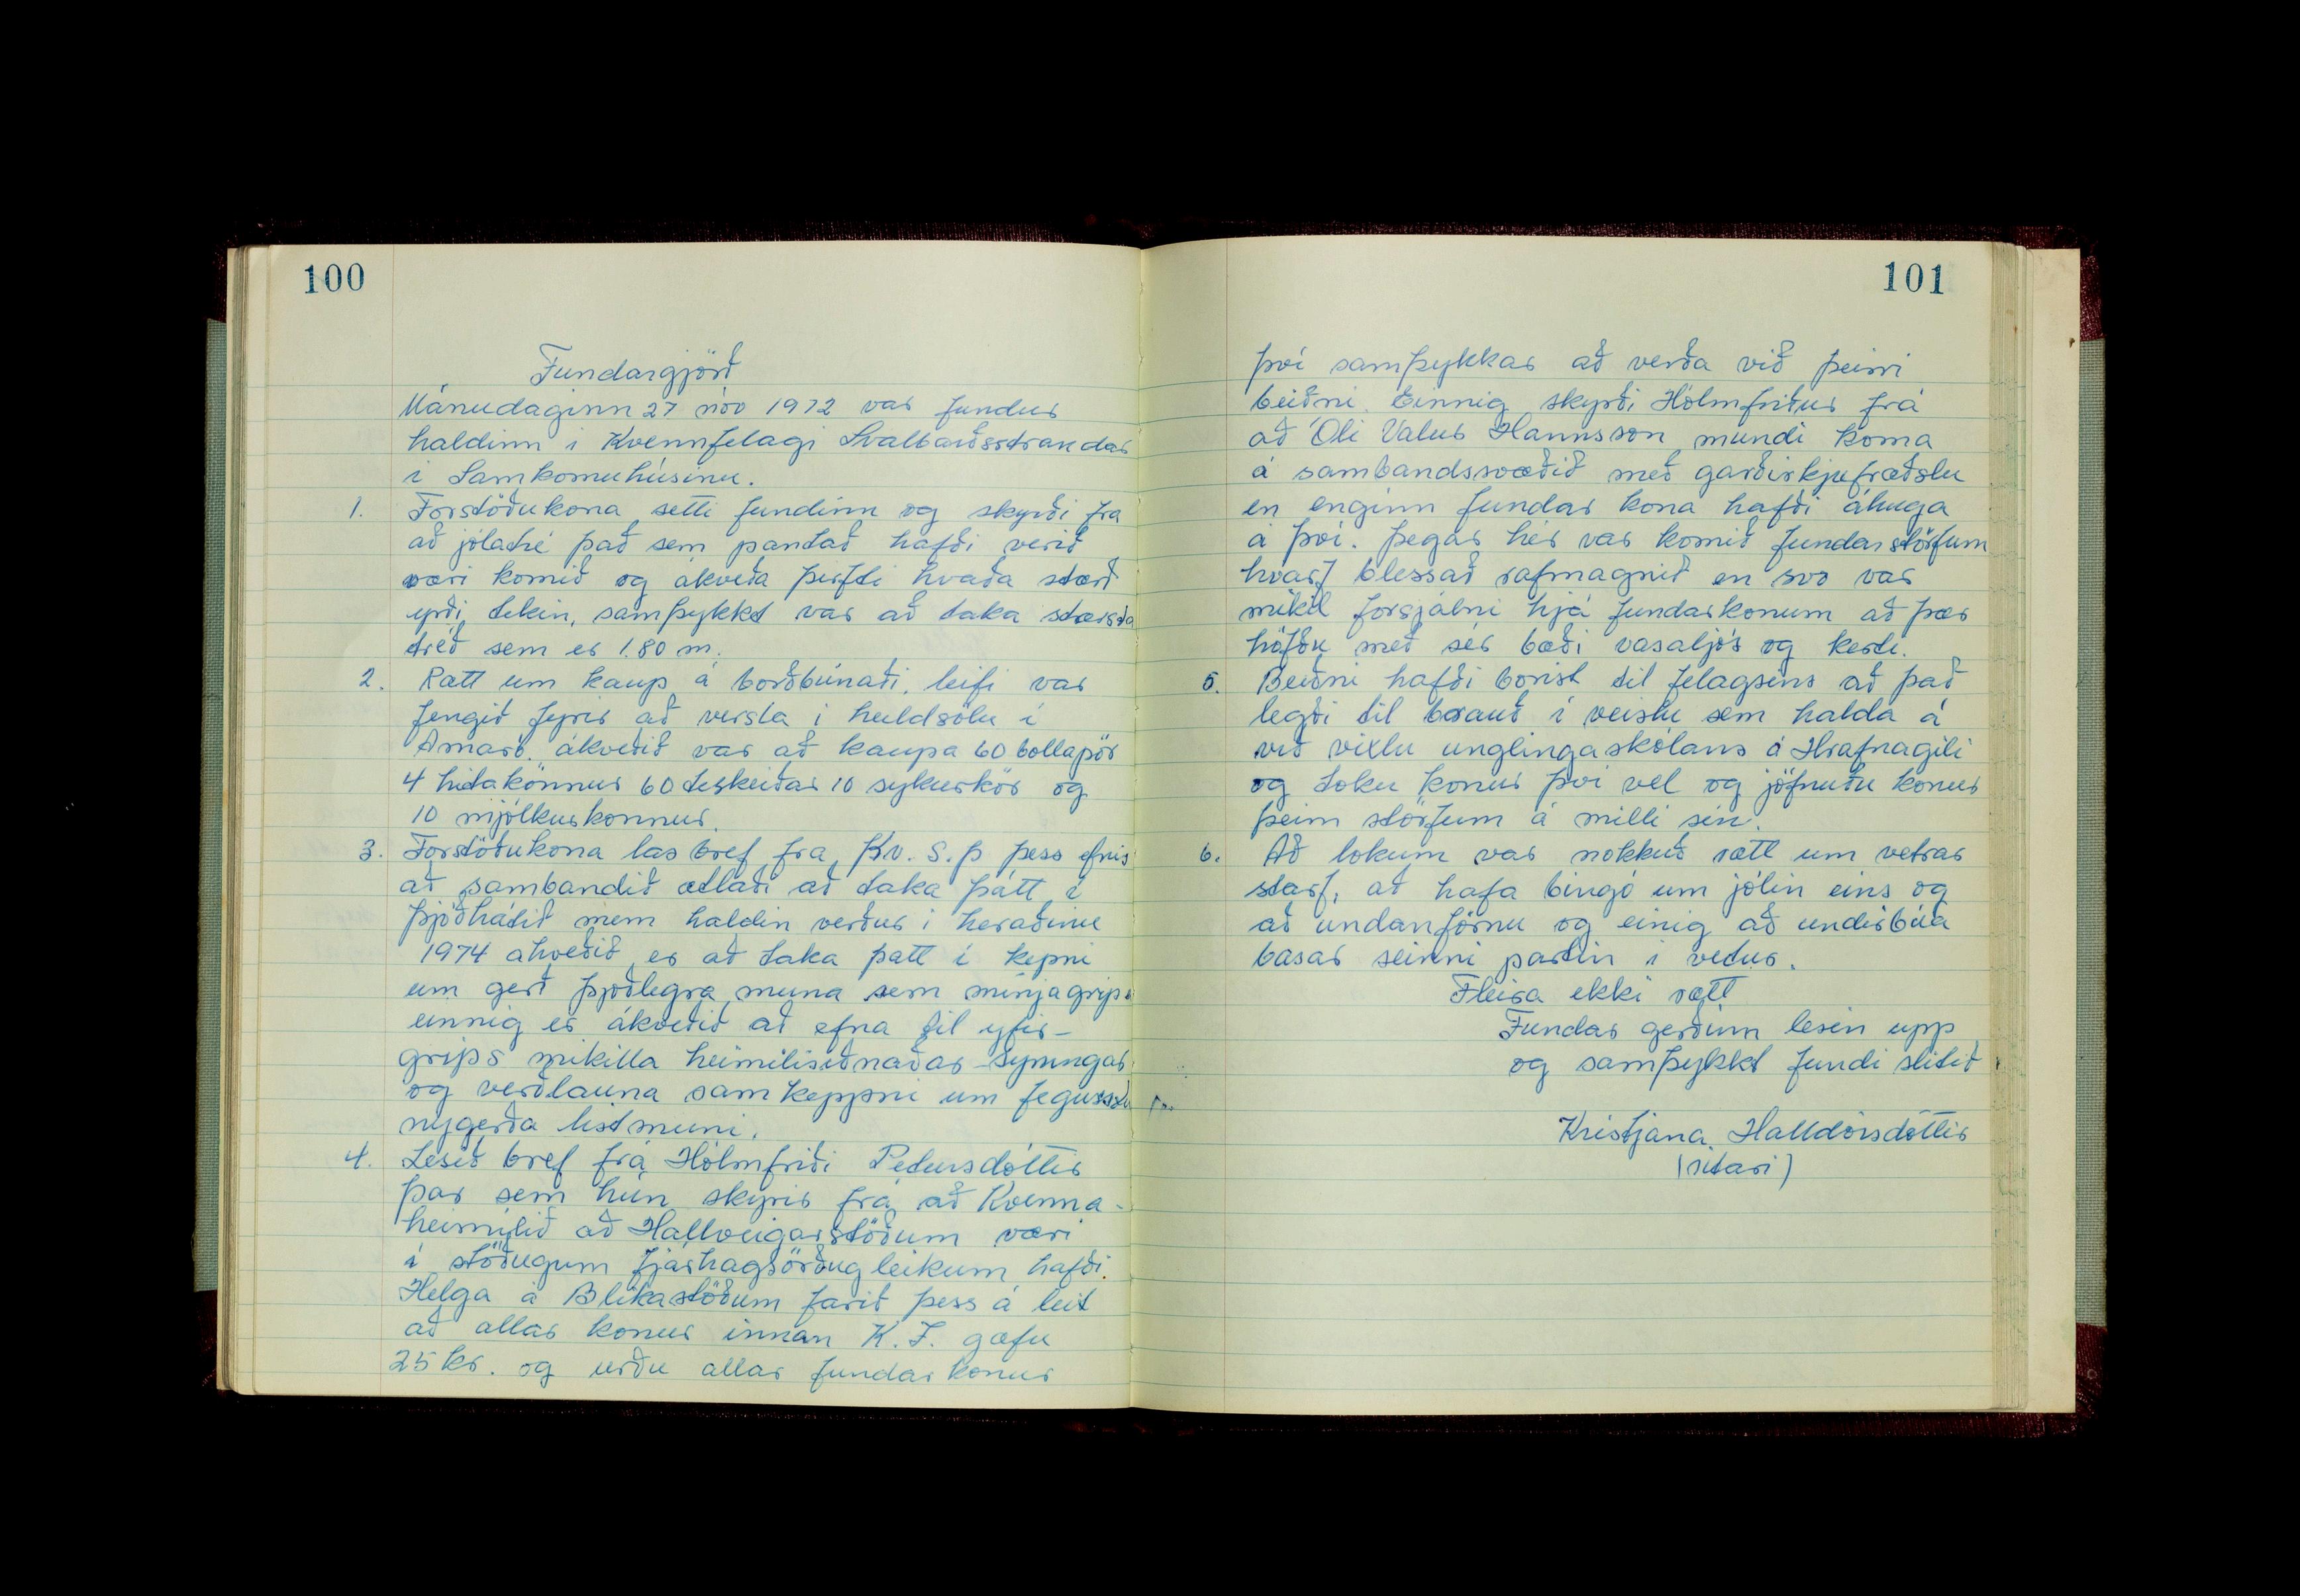 100
Fundargjörð
Mánudaginn 27 nóv 1972 var fundur
haldinn i Kvennfelagi Svalbarðsstrandar
i Samkomuhúsinu.
1. Forstöðukona setti fundinn og skyrði fra
að jólatré það sem pantað hafði verið
væri komið og ákveða þirfti hvaða stærð
yrði tekin, samþykkt var að taka stærsta
tréð sem er 1.80 m.
2. Rætt um kaup á borðbúnaði, leifi var
fengið fyrir að versla i heildsölu i
Amaró. ákveðið var að kaupa 60 bollapör
4 hitakönnur 60 teskeiðar 10 sykurkör og
10 mjólkurkonnur.
3. Forstöðukona las bref fra Kv. S.Þ þess efnis
að sambandið ætlaði að taka þátt í
þjóðhátið sem haldin verður i heraðinu
1974 ahveðið er að taka þatt i kepni
um gerð þjoðlegra muna sem minjagripi
einnig er ákveðið að efna til yfir-
grips mikilla heimilisiðnaðar-syningar
og verðlauna samkeppni um fegurstu
nýgerða listmuni.
4. Lesið bref frá Hólmfriði Petursdóttir
þar sem hún skyrir frá að Kvenna-
heimilið að Hallveigarstöðum væri
i stöðugum fjárhagsörðugleikum hafði
Helga á Blikastöðum farið þess á leit
að allar konur innan K.F. gæfu
25 kr. og urðu allar fundar konur
101
því samþykkar að verða við þeirri
beiðni. Einnig skyrði Hólmfriður frá
að Óli Valur Hannsson mundi koma
á sambandssvæðið með garðirkjufræðslu
en enginn fundar kona hafði áhuga
á því. Þegar hér var komið fundarstörfum
hvarf blessað rafmagnið en svo var
mikil forsjálni hjá fundarkonum að þær
höfðu með sér bæði vasaljós og kerti.
5. Beiðni hafði borist til felagsins að það
legði til brauð i veislu sem halda á
við vixlu unglingaskólans á Hrafnagili
og toku konur þvi vel og jöfnuðu konur
þeim störfum á milli sín.
6. Að lokum var nokkuð rætt um vetrar
starf, að hafa bingó um jólin eins og
að undanförnu og einig að undirbúa
basar seinni partin i vetur.
Fleira ekki rætt
Fundar gerðinn lesin upp
og samþykkt fundi slitið
Kristjana Halldórsdóttir
(ritari)